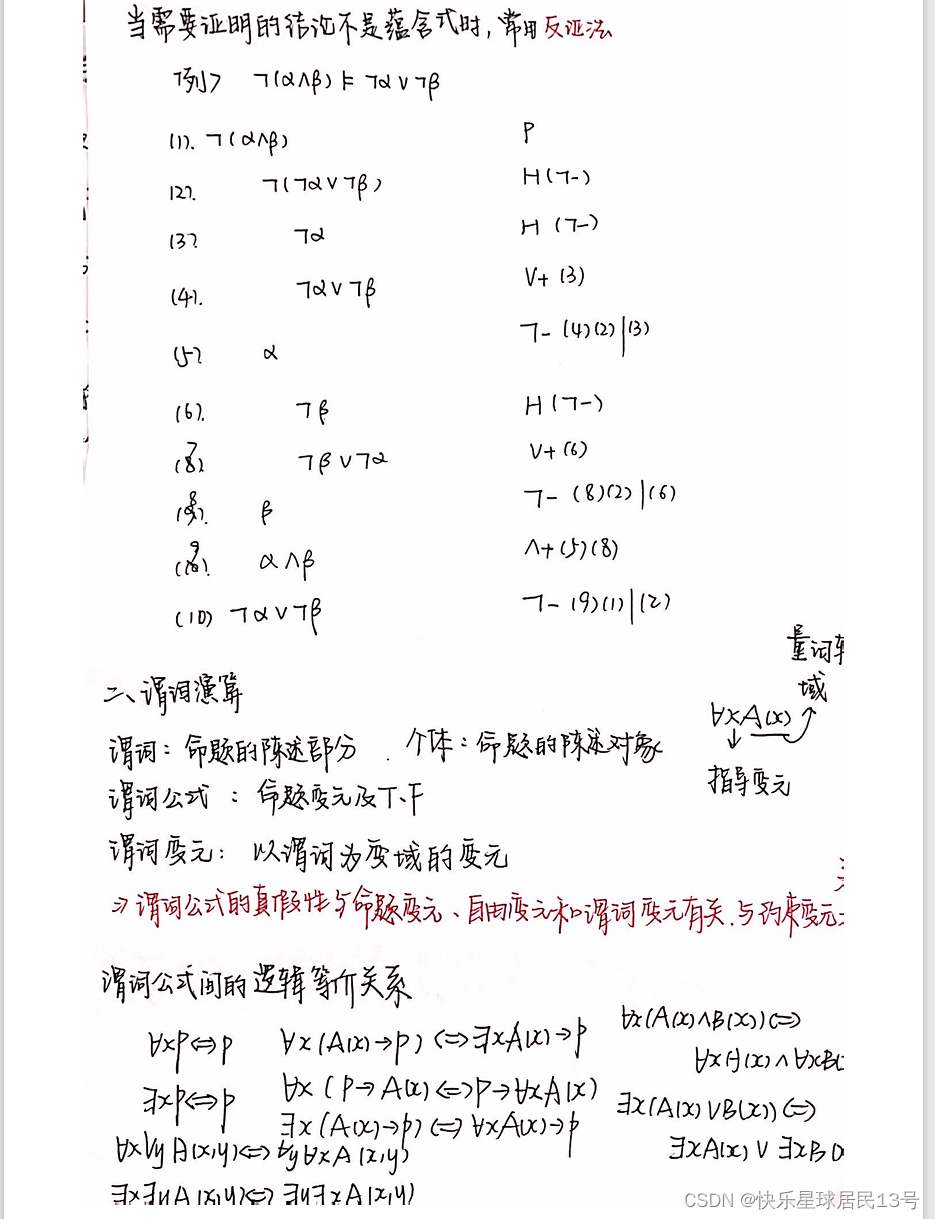 当需要证明的结论不是蕴含式时，常用反证法
例> ¬(α∧β) ⊨ ¬α∨¬β
(1). ¬(α∧β) P
(2). ¬(¬α∨¬β) H(¬-)
(3). ¬α H(¬-)
(4). ¬α∨¬β ∨+ (3)
(5). α ¬- (4)(2)|(3)
(6). ¬β H(¬-)
(7). ¬β∨¬α ∨+ (6)
(8). β ¬- (8)(2)|(6)
(9). α∧β ∧+(5)(8)
(10) ¬α∨¬β ¬- (9)(1)|(2)
量词辖
域
二、谓词演算
∀xA(x)
谓词：命题的陈述部分. 个体：命题的陈述对象
指导变元
谓词公式：命题变元及T、F
谓词变元：以谓词为变域的变元
⇒谓词公式的真假性与命题变元、自由变元和谓词变元有关，与约束变元
谓词公式间的逻辑等价关系
∀xp⇔p ∀x(A(x)→p)⇔∃xA(x)→p ∀x(A(x)∧B(x))⇔
∀xA(x)∧∀xB(
∃xp⇔p ∀x(p→A(x)⇔p→∀xA(x)
∃x(A(x)→p)⇔∀xA(x)→p ∃x(A(x)∨B(x))⇔
∀x∀yA(x,y)⇔∀y∀xA(x,y) ∃xA(x)∨∃xB(
∃x∃yA(x,y)⇔∃y∃xA(x,y)
CSDN @快乐星球居民13号